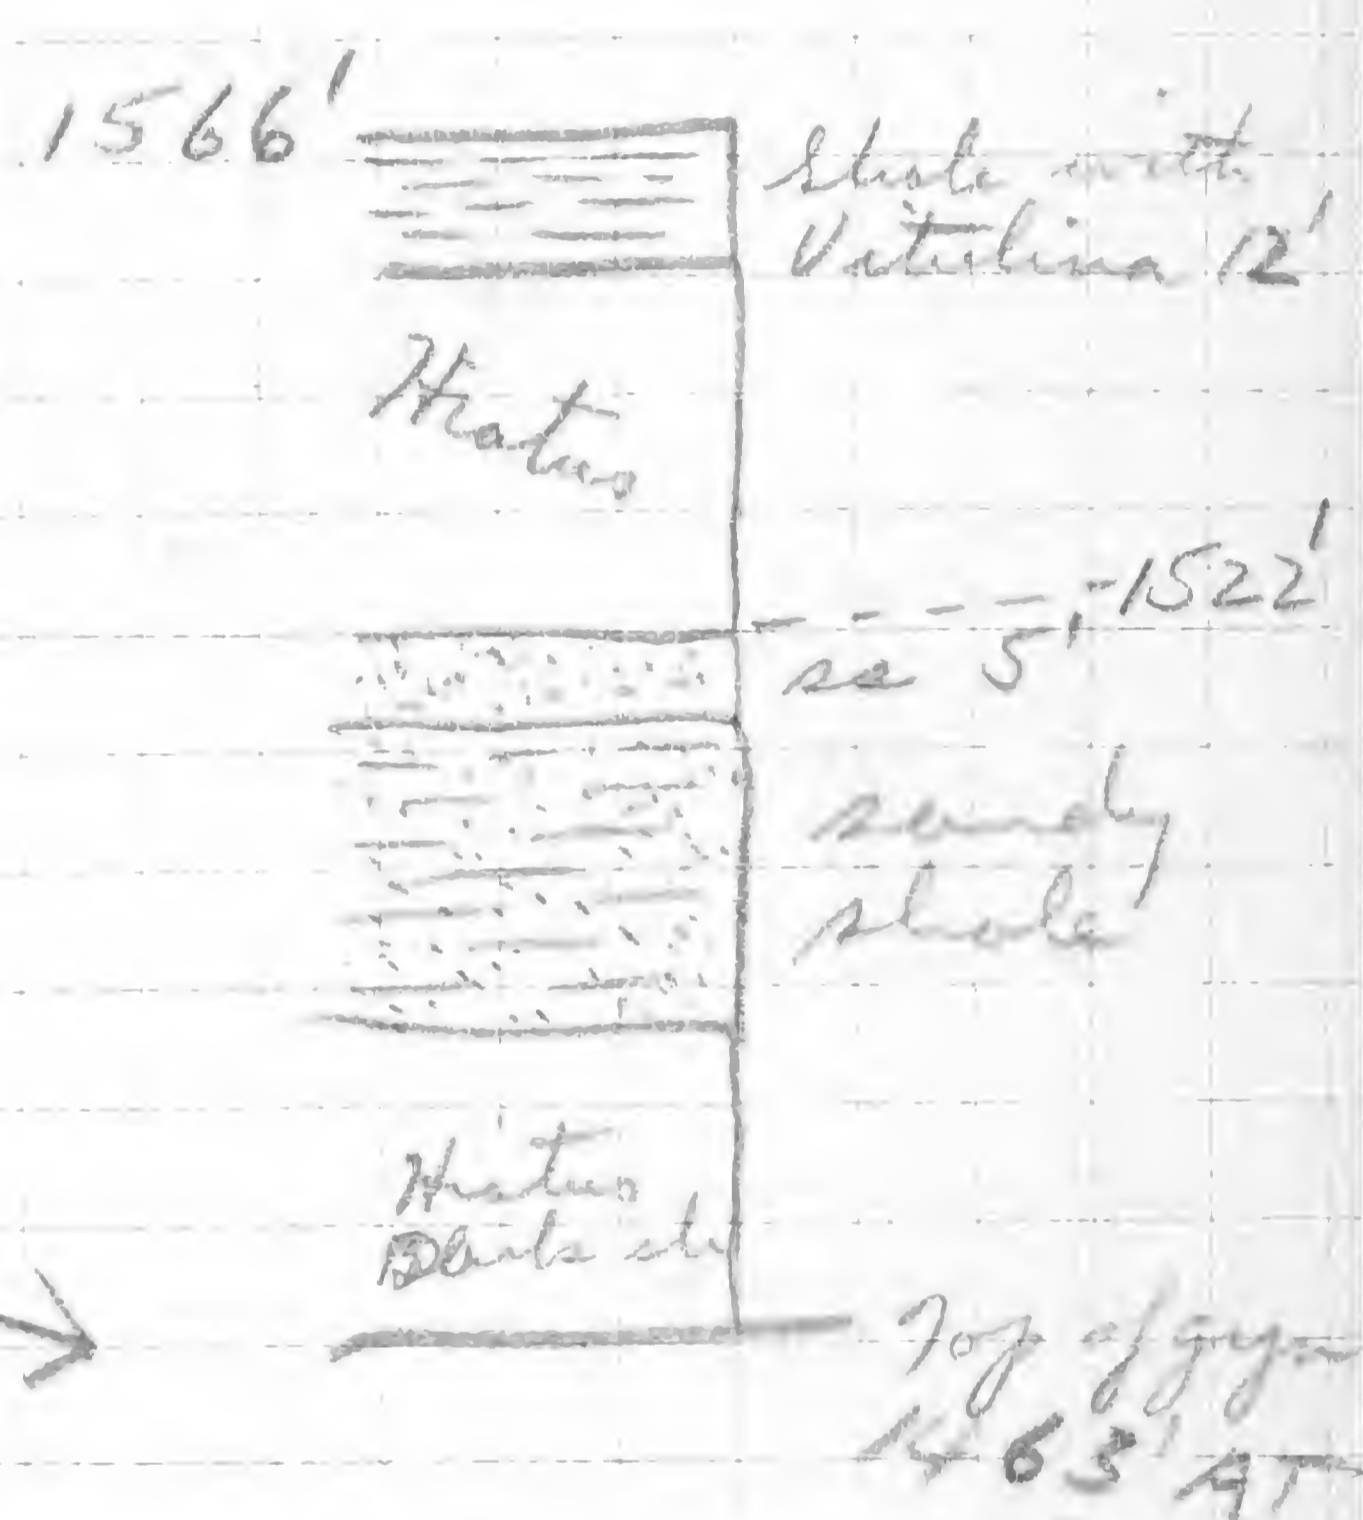 1566'
Shale with
Vitulina 12'
Hiatus
1522'
ss 5'
sandy
shale
Hiatus
Black sh
Top of gyp
1463' AT